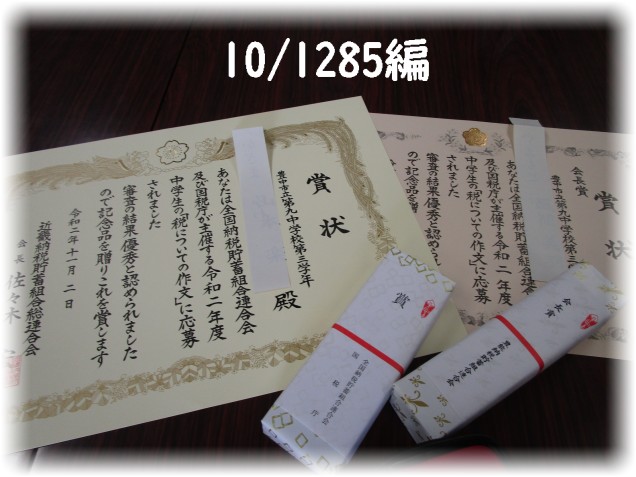 10/1285編
賞状
豊中市立第九中学校第三学年
殿
あなたは全国納税貯蓄組合連合会
及び国税庁が主催する令和二年度
中学生の「税についての作文」に応募
されました
審査の結果優秀と認められました
ので記念品を贈りこれを賞します
令和二年十一月二日
近畿納税貯蓄組合総連合会
会長 佐々木
会長賞
賞状
豊中市立第九中学校第三
あなたは全国納税貯蓄組合連合会
及び国税庁が主催する令和二年度
中学生の「税についての作文」に応募
されました
審査の結果優秀と認められ
ので記念品を贈
賞
全国納税貯蓄組合連合会
国税庁
会長賞